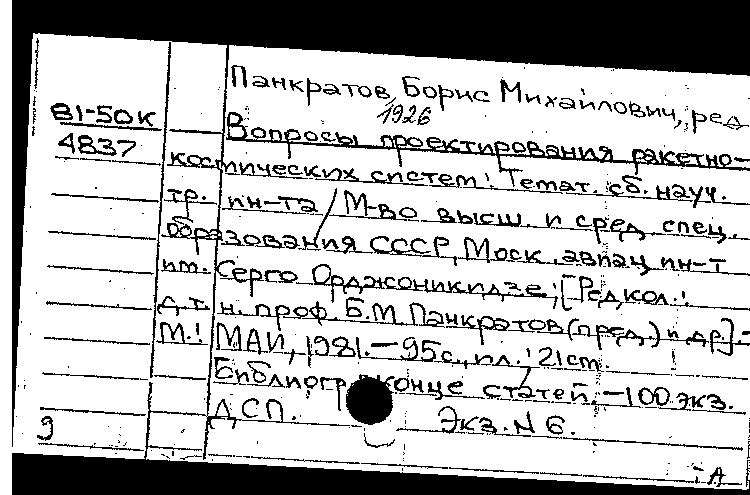 Панкратов, Борис Михайлович, ред
1926
81-50К
4837
Вопросы проектирования ракетно-
космических систем: Темат. сб. науч.
тр. ин-та / М-во высш. и сред. спец.
образования СССР, Моск. авиац. ин-т
им. Серго Орджоникидзе; [Редкол.:
д.т.н. проф. Б.М. Панкратов (пред.) и др.].-
М.: МАИ, 1981.-95с., ил.; 21см.
Библиогр. конце статей.-100 экз.
ДСП. Экз. N 6.
9
А